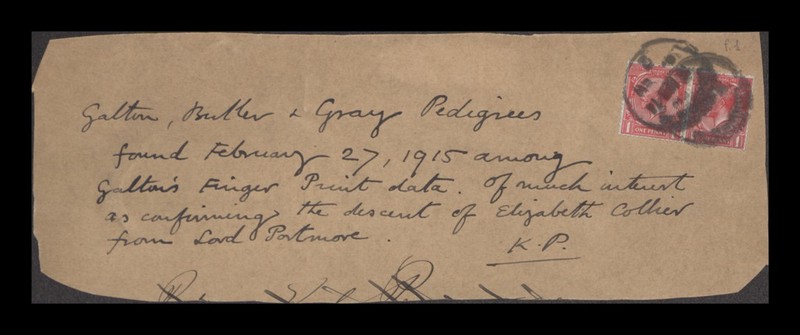 Galton, Butler & Gray Pedigrees
found February 27, 1915 among
Galton's Finger Print data. Of much interest
as confirming the descent of Elizabeth Collier
from Lord Portmore.
K.P.